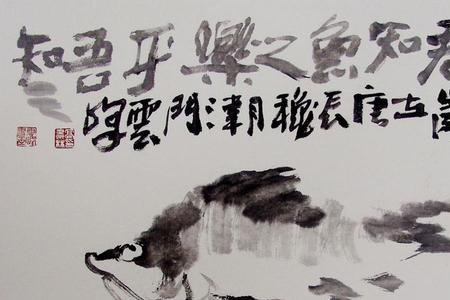 知魚之樂乎吾知之
在庚辰穐月津門雲